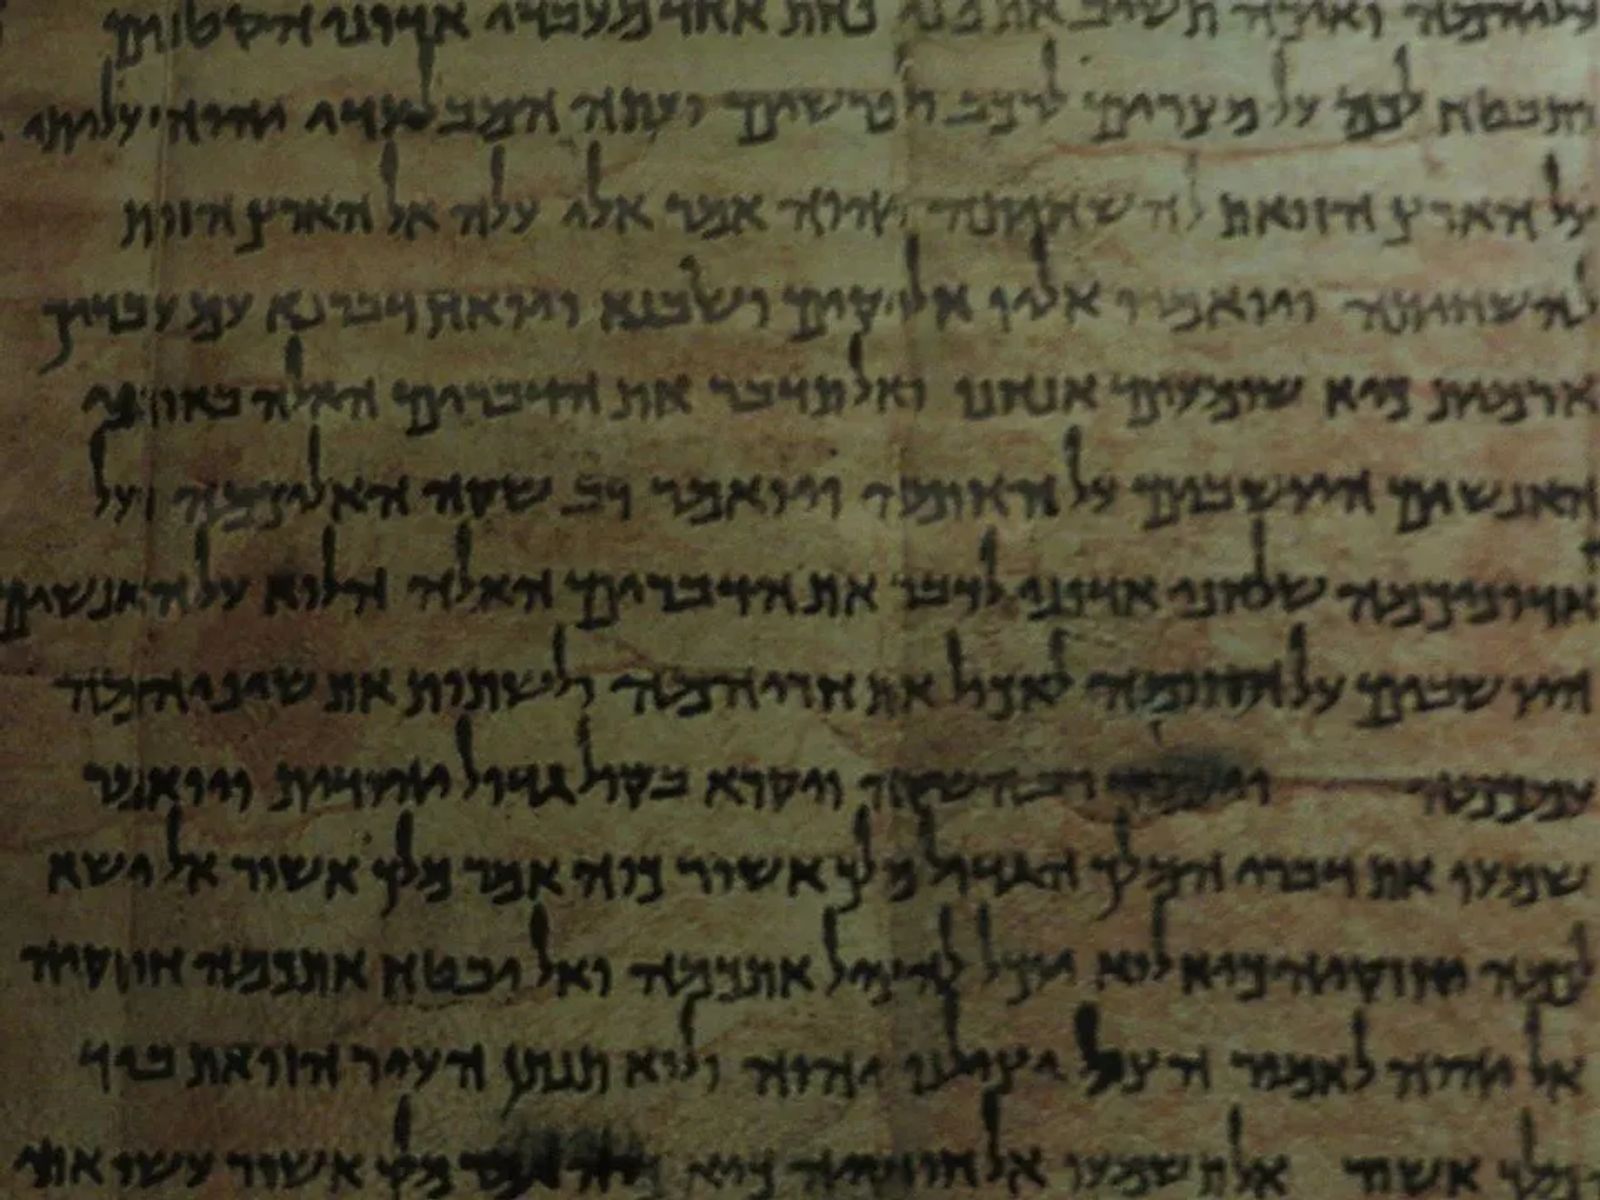 עליהמה ואיכה תשיב את פני פחת אחד מעבדי אדוני הקטנים
ותבטח לכה על מצרים לרכב ולפרשים ועתה המבלעדי יהוה עליתי
על הארץ הזואת להשחיתה יהוה אמר אלי עלה אל הארץ הזות
להשחיתה ויואמרו אליו אליקים ושובנא ויואח דברנא עם עבדיך
ארמית כיא שומעים אנחנו ואל תדבר את הדברים האלה באוזני
האנשים היושבים על החומה ויואמר רב שקה האליכמה ועל
אדוניכמה שלחני אדוני לדבר את הדברים האלה הלוא על האנשים
היושבים על החומה לאכול את חריהמה ולשתות את שיניהמה
עמכמה רב שקה ויקרא בקול גדול יהודית ויואמר
שמעו את דברי המלך הגדול מלך אשור כוה אמר מלך אשור אל ישא
לכמה חוזקיה כיא לוא יוכל להציל אתכמה ואל יבטח אתכמה חוזקיה
אל יהוה לאמור הצל יצילנו יהוה ולוא תנתן העיר הזואת ביד
מלך אשור אל תשמעו אל חוזקיה כיא אמר מלך אשור עשו אתי